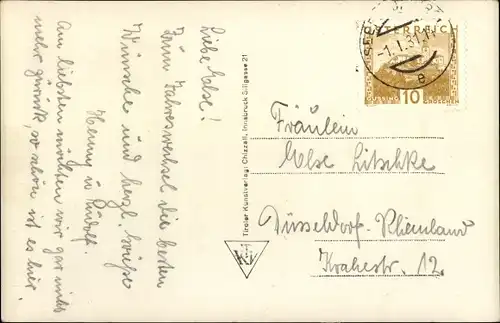 Liebe Else!
Zum Jahreswechsel die besten
Wünsche und herzl. Grüße
Henny u. Rudolf.
Am liebsten möchten wir gar nicht
mehr zurück, so schön ist es hier.
Tiroler Kunstverlag Chizzali, Innsbruck, Sillgasse 21
ÖSTERREICH
-1.I.31.11
e
10
GROSCHEN
Fräulein
Else Litschke
Düsseldorf-Rheinland
Krahestr. 12.